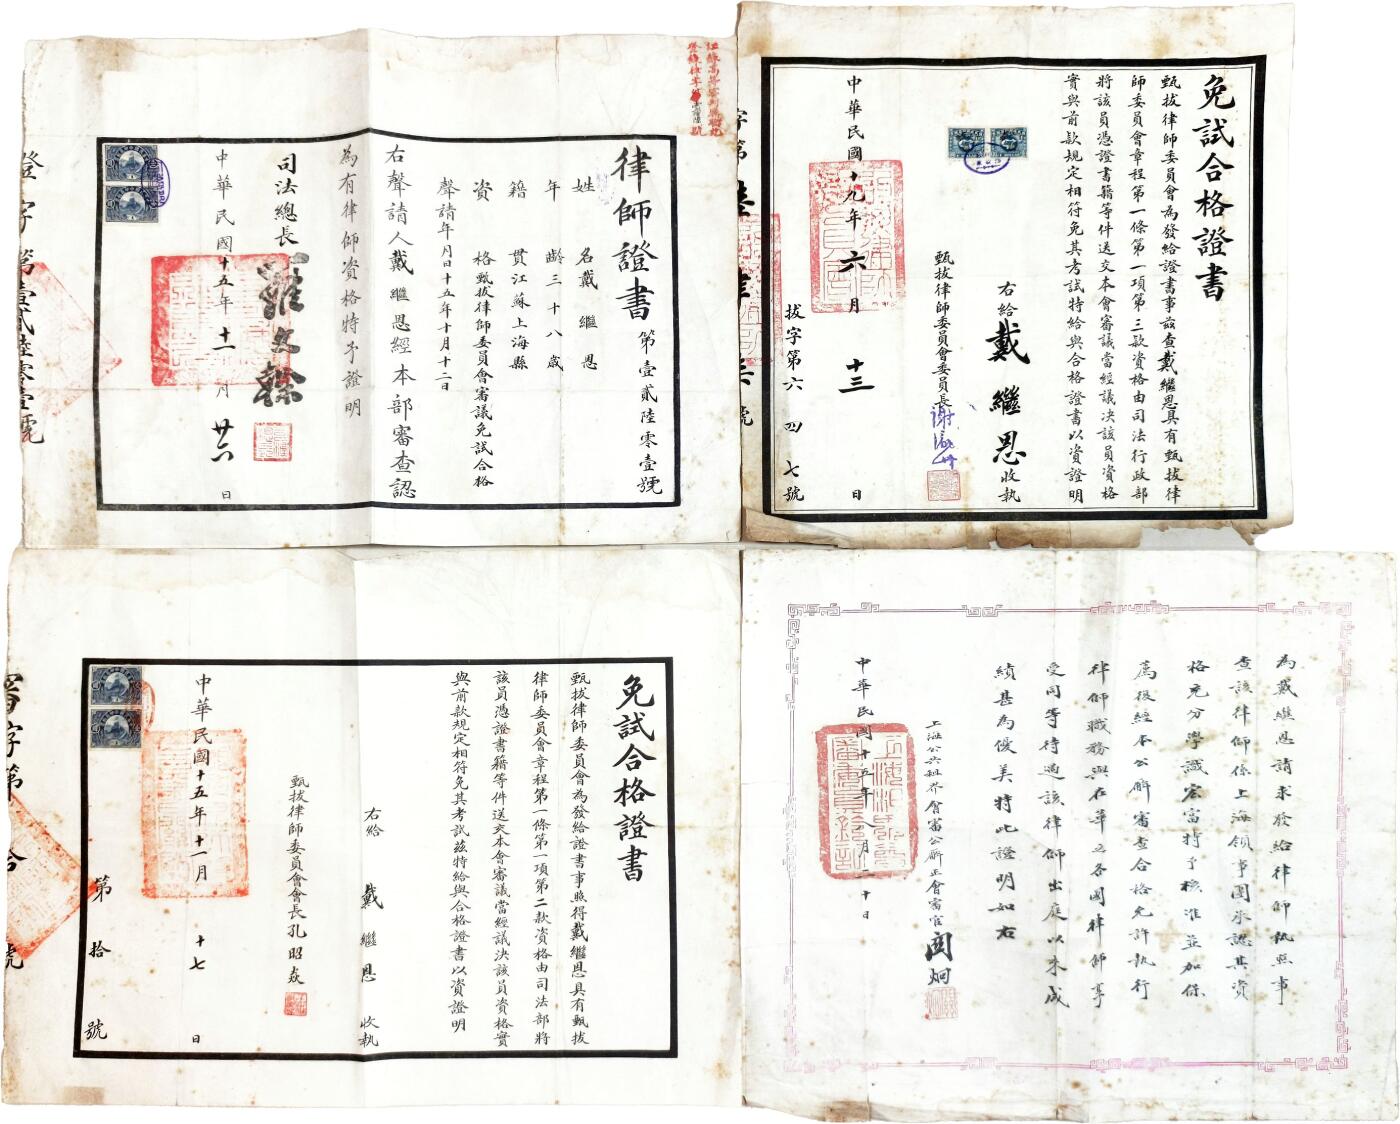 律師證書
第壹貳陸零壹號
姓名戴繼恩
年齡三十八歲
籍貫江蘇上海縣
資格甄拔律師委員會審議免試合格
聲請年月日十五年十月十二日
右聲請人戴繼恩經本部審查認
為有律師資格特予證明
司法總長
羅文榦
中華民國十五年十一月廿六日
證字第壹貳陸零壹號
免試合格證書
甄拔律師委員會為發給證書事茲查戴繼恩具有甄拔律
師委員會章程第一條第一項第三款資格由司法行政部
將該員憑證書籍等件送交本會審議當經議决該員資格
實與前款規定相符免其考試特給與合格證書以資證明
右給戴繼恩收執
甄拔律師委員會委員長
中華民國十九年六月十三日
拔字第六四七號
免試合格證書
甄拔律師委員會為發給證書事照得戴繼恩具有甄拔
律師委員會章程第一條第一項第二款資格由司法部將
該員憑證書籍等件送交本會審議當經議決該員資格實
與前款規定相符免其考試茲特給與合格證書以資證明
右給戴繼恩收執
甄拔律師委員會會長孔昭焱
中華民國十五年十一月十七日
第拾號
為戴繼恩請求發給律師執照事
查該律師係上海領事團承認其資
格充分學識宏富特予核准並加保
薦後經本公廨審查合格允許執行
律師職務與在華之各國律師享
受同等待遇該律師出庭以來成
績甚為優美特此證明如右
上海公共租界會審公廨正會審官
關炯
中華民國十五年八月二十日